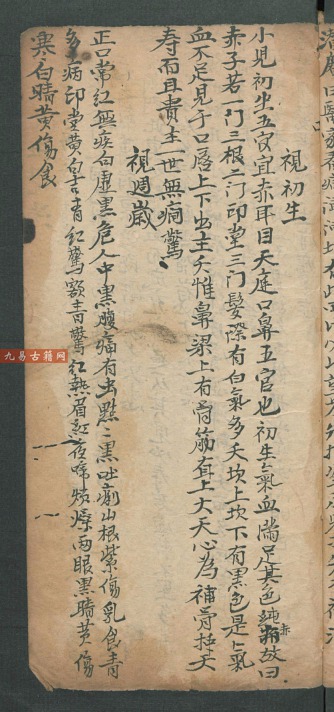 視初生
小兒初生五官宜赤耳目天庭口鼻五官也初生氣血滿足其色純赤故曰
赤子若一門二根二门印堂三门髮際有白氣多夭坎上坎下有黑色是氣
血不足見于口唇上下出主夭惟鼻梁上有青筋直上大天心為補骨插天
寿而且貴主一世無痫驚
視週歲
正口常紅無疾白虛黑危人中黑腹痛有虫點三黑吐痢山根紫傷乳食青
多病印堂黄白吉青紅驚額青驚紅熱眉紅夜啼煩燥两眼黑睛黄傷
寒白睛黄傷食
九易古籍网